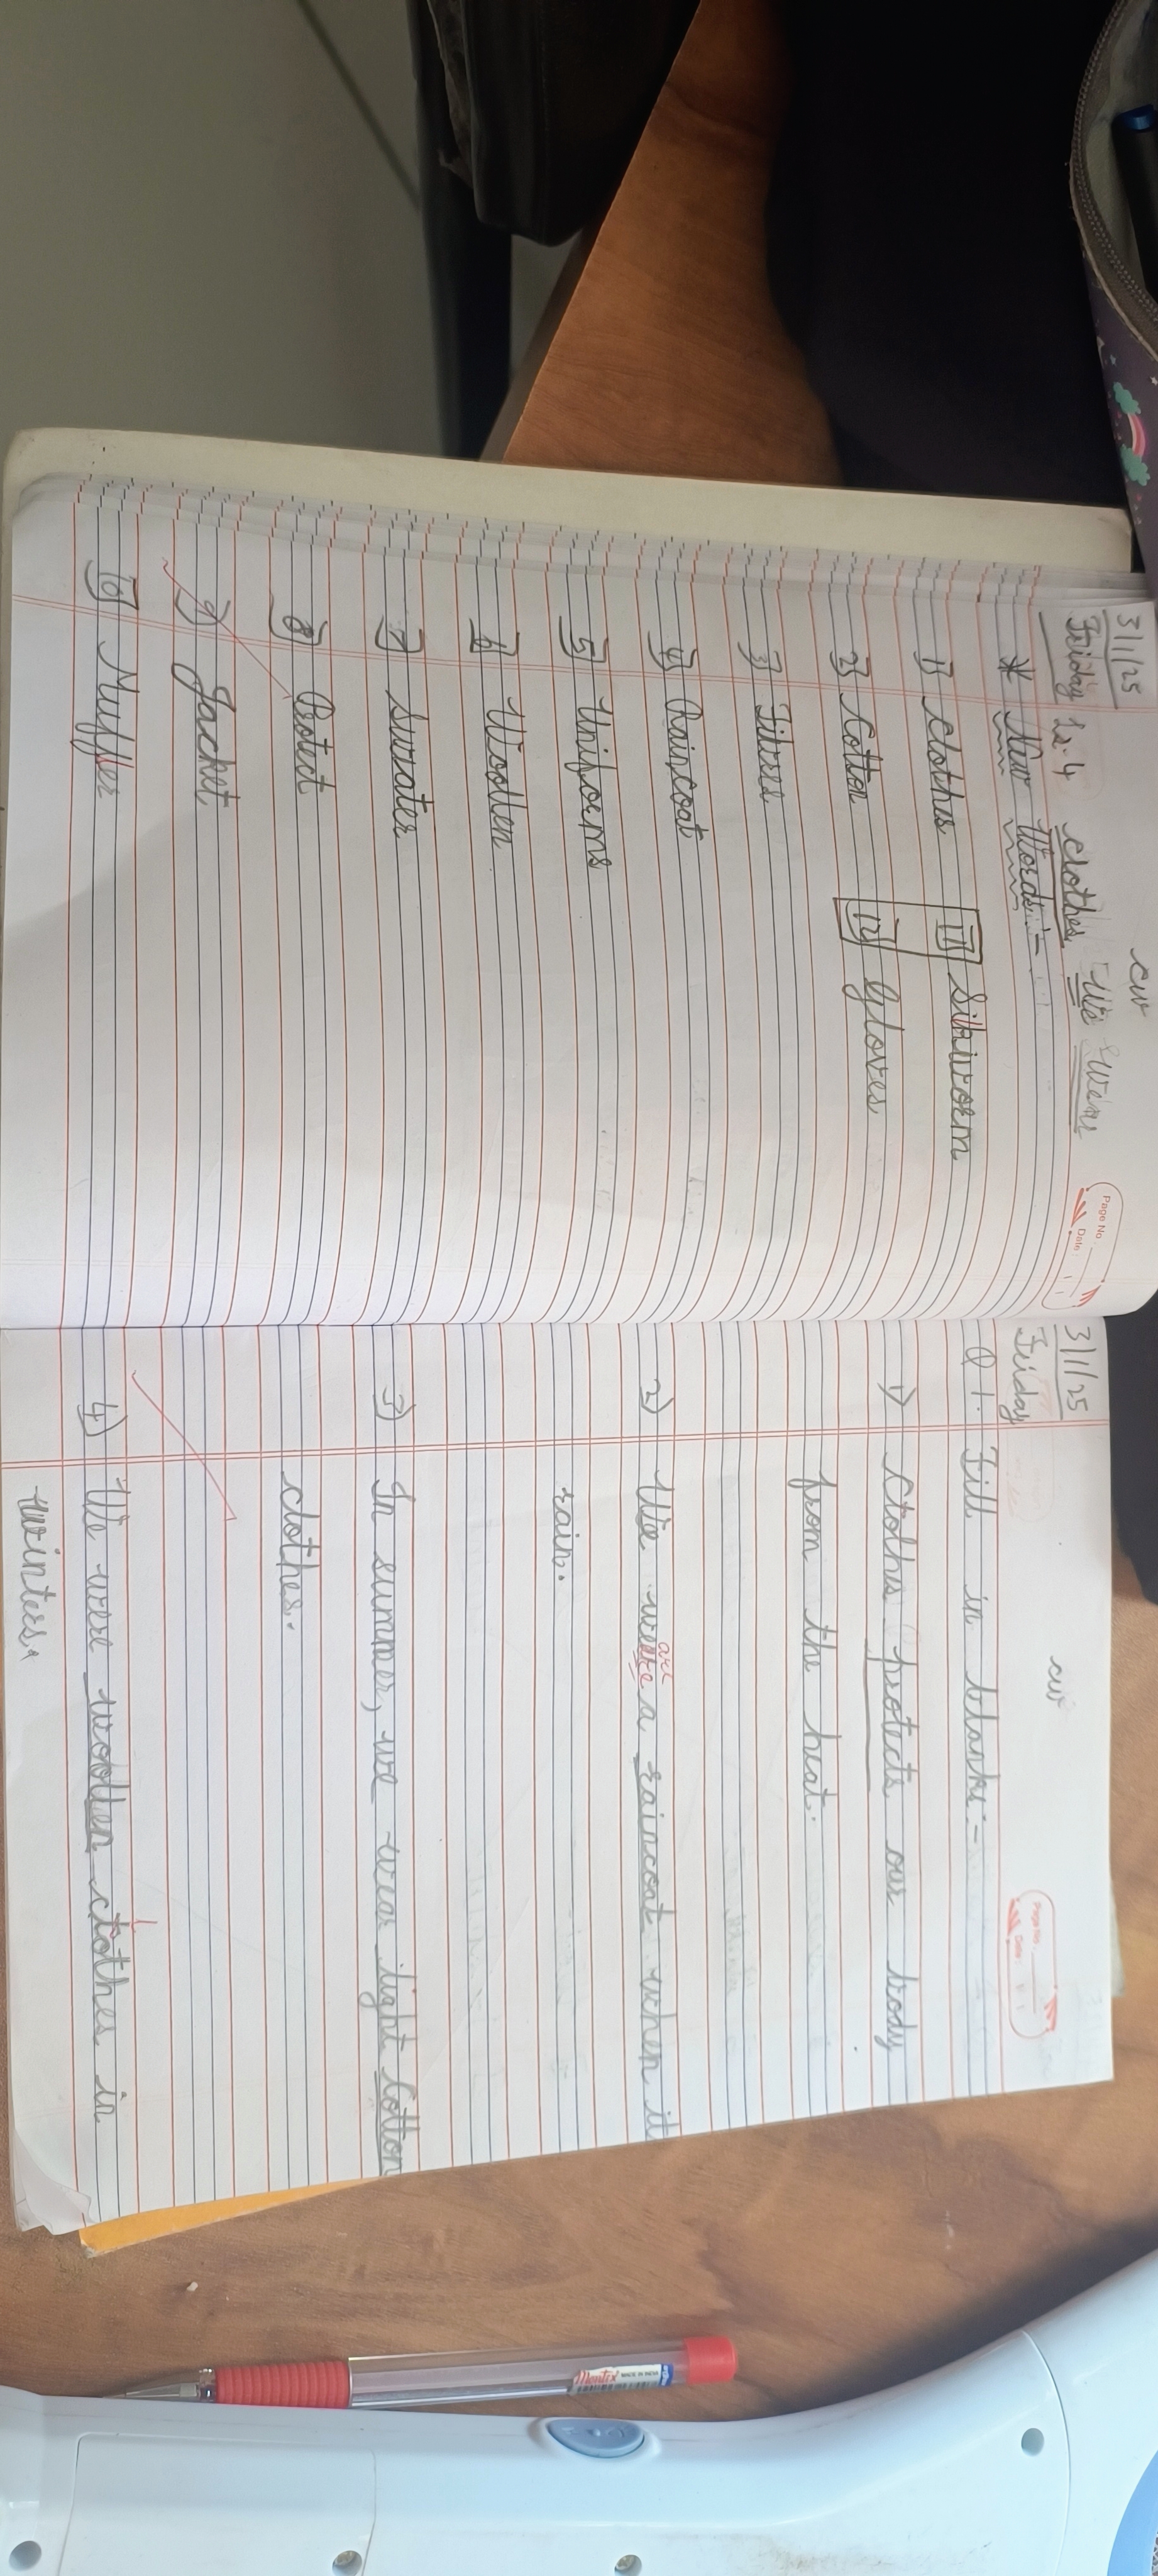 cw
3/1/25
Friday Ls.4 clothes We wear
Page No.
Date:
* New Words:-
1) clothes
11) Silkworm
2) Cotton
12) gloves
3) Fibres
4) Raincoat
5) Uniforms
6) Woollen
7) Swater
8) Protect
9) Jacket
10) Muffler
cw
3/1/25
Friday
Page No.
Date:
Q 1. Fill in blanks:-
1) Clothes protects our body
from the heat.
ar
2) We were a raincoat when it
rain.
3) In summer, we wear light Cotton
clothes.
4) We were woollen clothes in
winters.
Montex